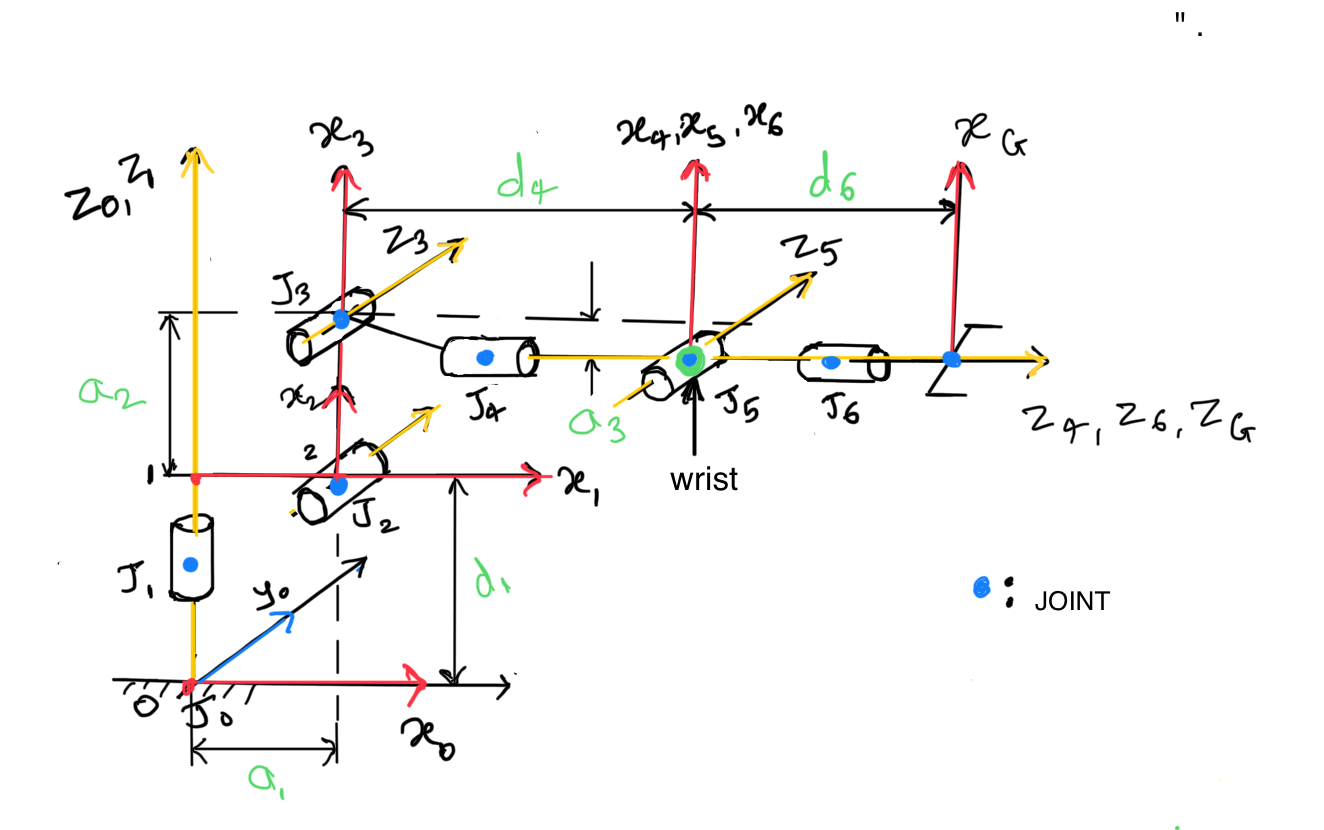 " .
x3
x4, x5, x6
xG
z0, z1
d4
d6
z3
z5
J3
a2
x2
J4
a3
J5
J6
z4, z6, zG
wrist
2
1
x1
J2
J1
y0
d1
: JOINT
0
J0
x0
a1